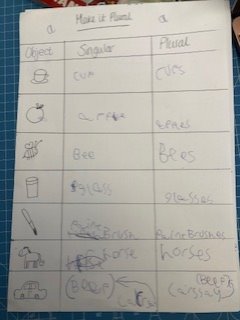 Make it Plural
Object Singular Plural
cup cups
Bee Bees
glass glasses
Brush PaintBrushes
horse horses
(Beep) (Beep)